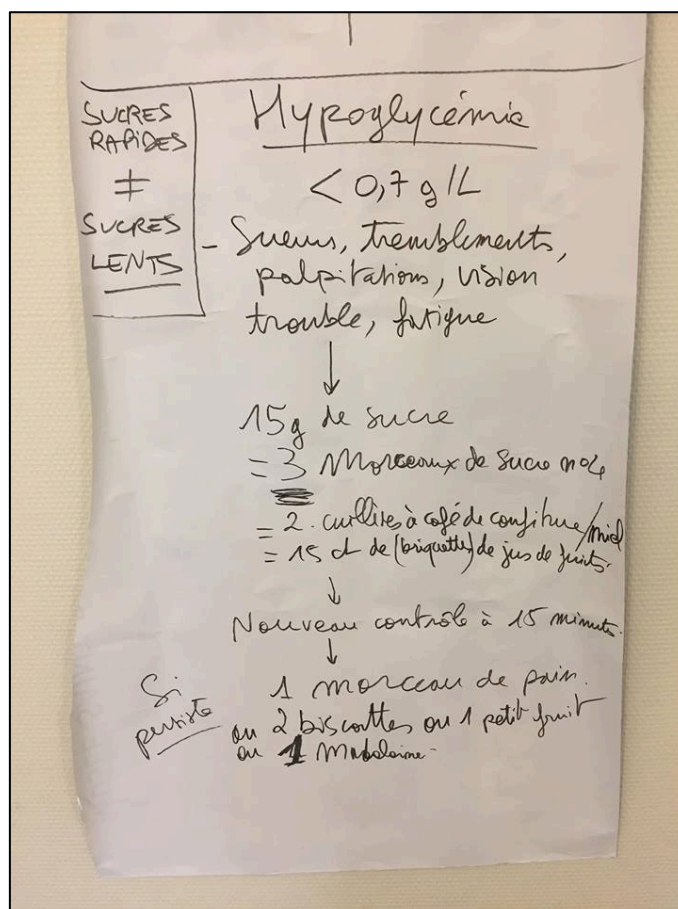 SUCRES
RAPIDES
≠
SUCRES
LENTS
Hypoglycémie
< 0,7 g/L
- Sueurs, tremblements,
palpitations, vision
trouble, fatigue
↓
15g de sucre
= 3 Morceaux de sucre n°4
= 2 cuillères à café de confiture/miel
= 15 cl de (briquette) de jus de fruits.
↓
Nouveau contrôle à 15 minutes.
↓
Si
persiste
1 morceau de pain.
ou 2 biscottes ou 1 petit fruit
ou 1 Madeleine-